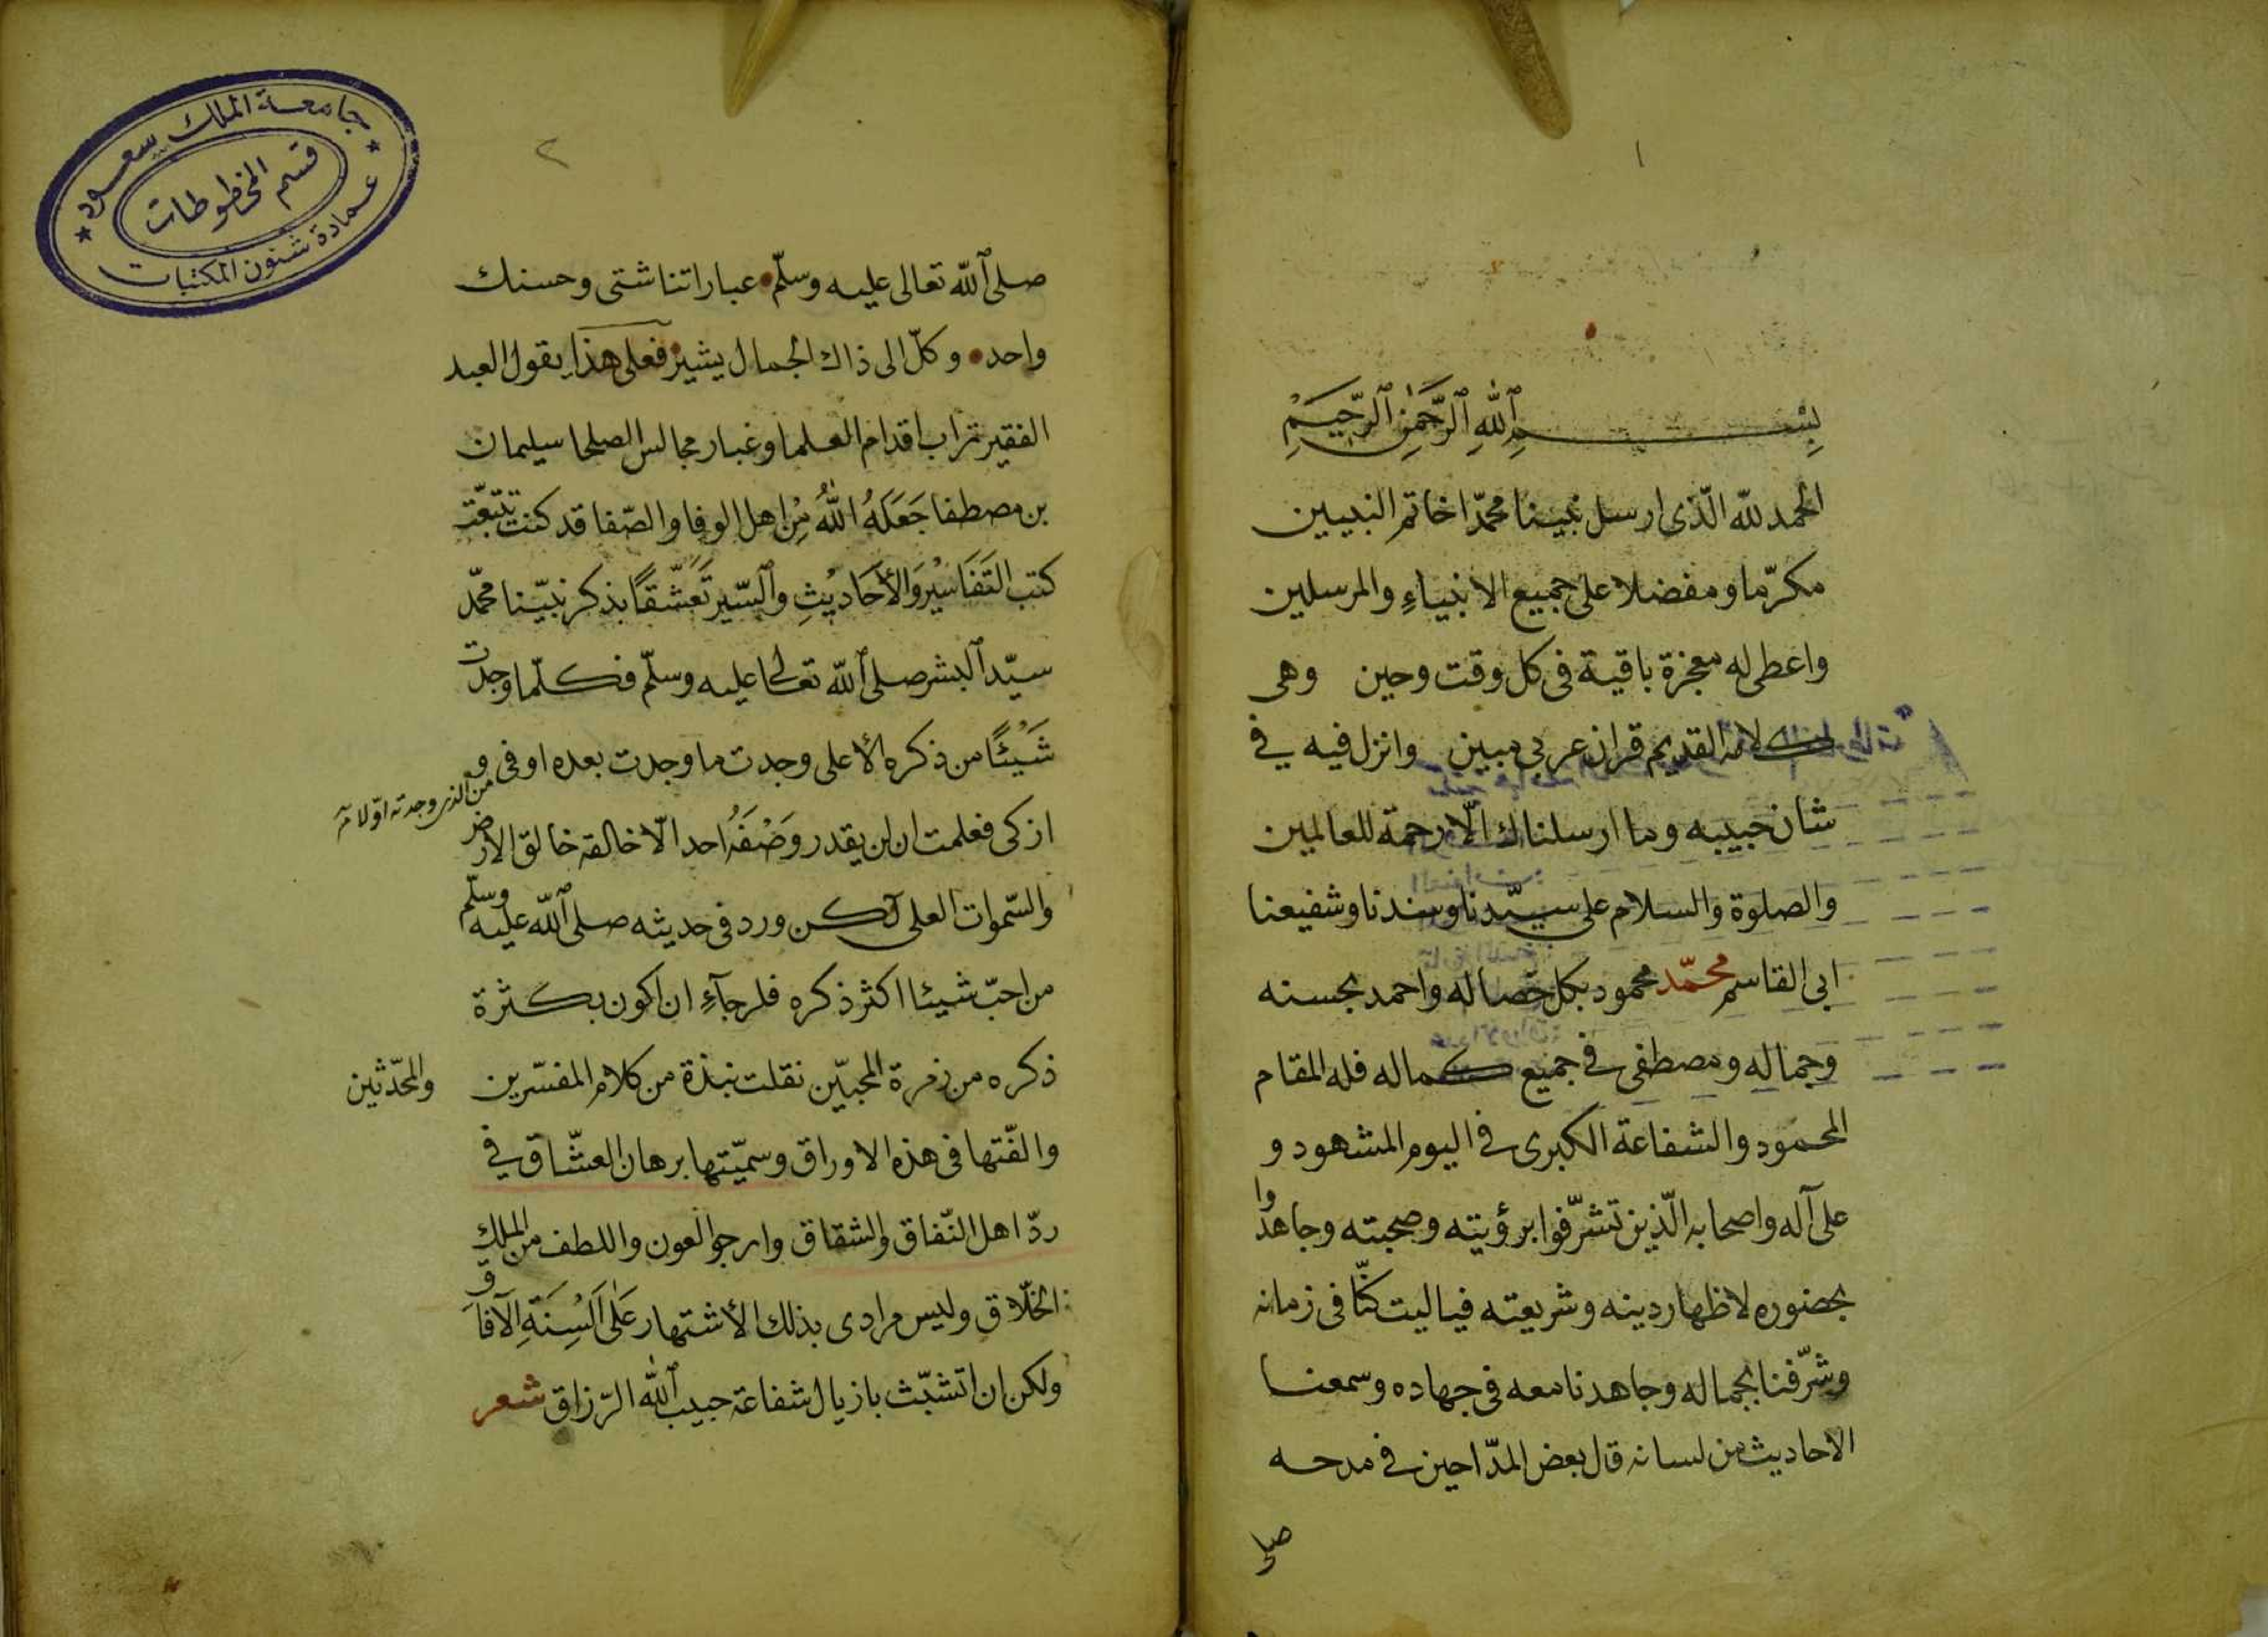 ١
بِسْمِ ٱللهِ ٱلرَّحْمٰنِ ٱلرَّحِيمِ
الحمد لله الّذى ارسل نبينا محمّدا خاتم النبيين
مكرّما ومفضلا على جميع الانبياءِ والمرسلين
واعطى له معجزة باقية فى كل وقت وحين وهى
كلامه القديم قران عربى مبين وانزل فيه فى
شان حبيبه وما ارسلناك الّا رحمة للعالمين
والصلوة والسلام على سيّدنا وسندنا وشفيعنا
ابى القاسم محمّد محمود بكل خصاله واحمد بحسنه
وجماله ومصطفى فى جميع كماله فله المقام
المحمود والشفاعة الكبرى فى اليوم المشهود و
على آله واصحابه الّذين تشرّفوا برؤيته وصحبته وجاهدوا
بحضوره لاظهار دينه وشريعته فياليت كنّا فى زمانه
وشرّفنا بجماله وجاهدنا معه فى جهاده وسمعنا
الاحاديث من لسانه قال بعض المدّاحين فى مدحه
صلى
٢
جامعة الملك سعود
قسم المخطوطات
عمادة شئون المكتبات
صلى ٱلله تعالى عليه وسلّم عباراتنا شتى وحسنك
واحد وكلّ الى ذاك الجمال يشير فعلى هذا يقول العبد
الفقير تراب اقدام العلما وغبار مجالس الصلحا سليمان
بن مصطفا جَعَلَهُ اللهُ مِنْ اهل الوفا والصّفا قد كنت تتبّعت
كتب التَفَاسْيْرِ وَالأَحَادِيْثِ وٱلسّير تَعَشّقًا بذكر نبيّنا محمّد
سيّد ٱلبشر صلى ٱلله تعالى عليه وسلّم فكلّما وجدت
شَيْئًا من ذكره الأعلى وجدت ما وجدت بعده اوفى و
من الذى وجدته اوّلا
ازكى فعلمت ان لن يقدر وَصْفَهُ احد الّا خالقه خالق الارض
والسّموات العلى لكن ورد فى حديثه صلى ٱلله عليه وسلّم
من احبّ شيئا اكثر ذكره فلرجآءِ ان اكون بكثرة
ذكره من زمرة المحبيّن نقلت نبذة من كلام المفسّرين والمحدّثين
والفّتها فى هذه الاوراق وسمّيتها برهان العشّاق فى
ردّ اهل النّفاق والشقاق وارجو العون واللطف من الملك
الخلّاق وليس مرادى بذلك الأشتهار عَلٰى اَلْسِنَةِ الآفاق
ولكن ان اتشبّث باذيال شفاعة حبيب ٱلله الرّزاق شعر